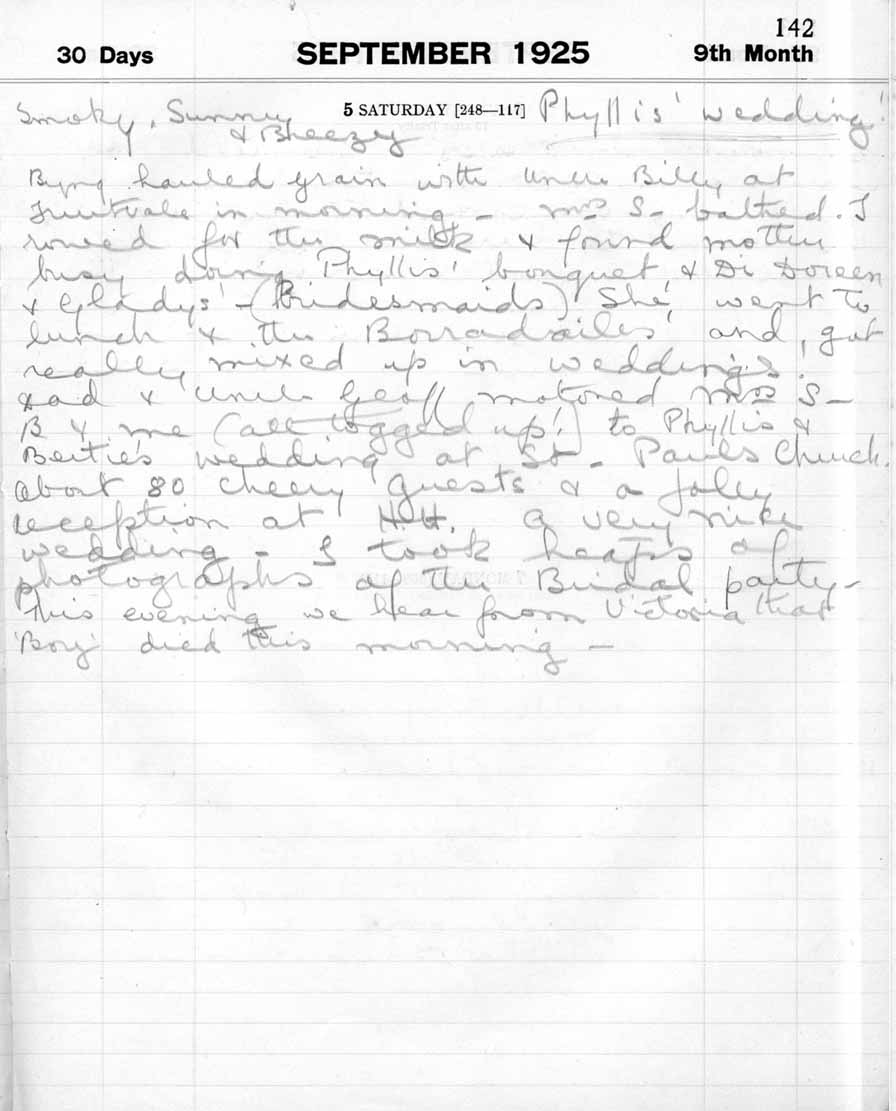 142
30 Days SEPTEMBER 1925 9th Month
Smoky, Sunny 5 SATURDAY [248—117] Phyllis' wedding!
& Breezy
Byng hauled grain with Uncle Billy at
Fruitvale in morning - Mrs S- bathed. I
rowed for the milk & found mother
busy doing Phyllis' bouquet & Di Doreen
& Gladys' - (Bridesmaids) She went to
lunch & the Borradailes' and got
really mixed up in weddings!
Dad & Uncle Geoff motored Mrs S-
B & me (all togged up!) to Phyllis &
Bertie's wedding at St. Pauls Church.
about 80 cheery guests & a jolly
reception at H.H. a very nike
wedding - I took heaps of
photographs of the Bridal party -
This evening we hear from Victoria that
'Boy' died this morning -